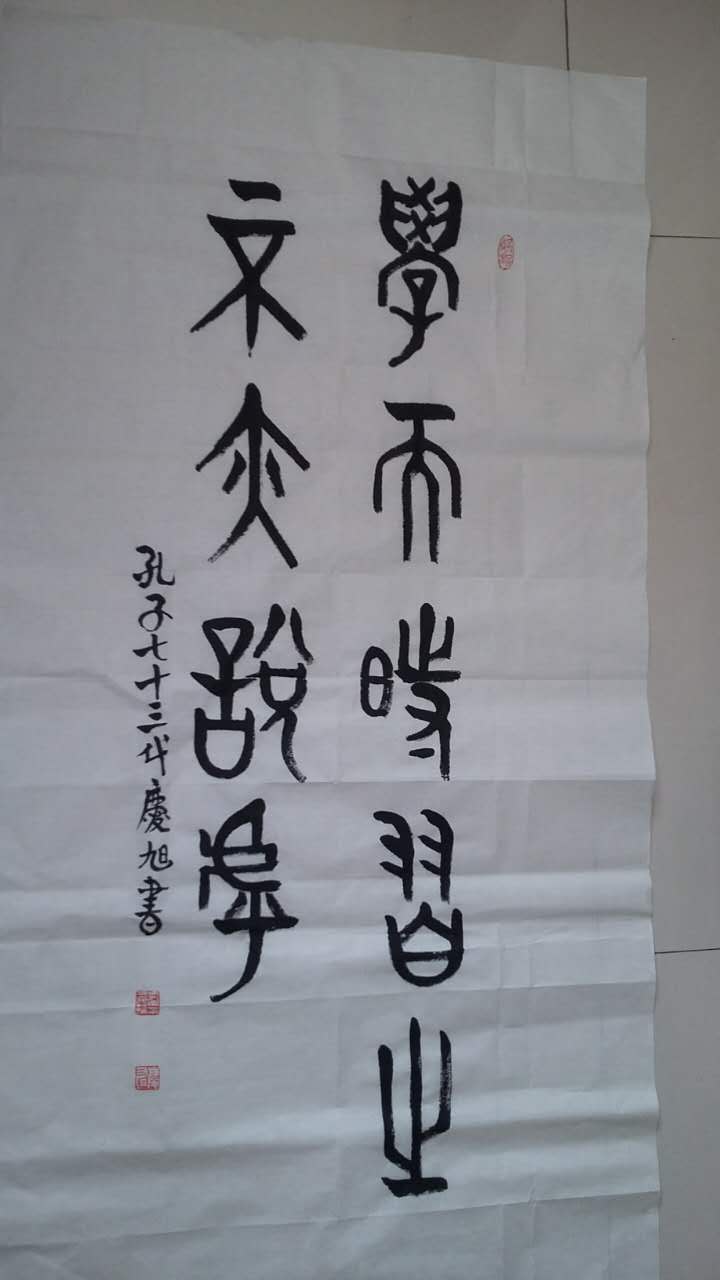 學而時習之
不亦說乎
孔子七十三代慶旭書